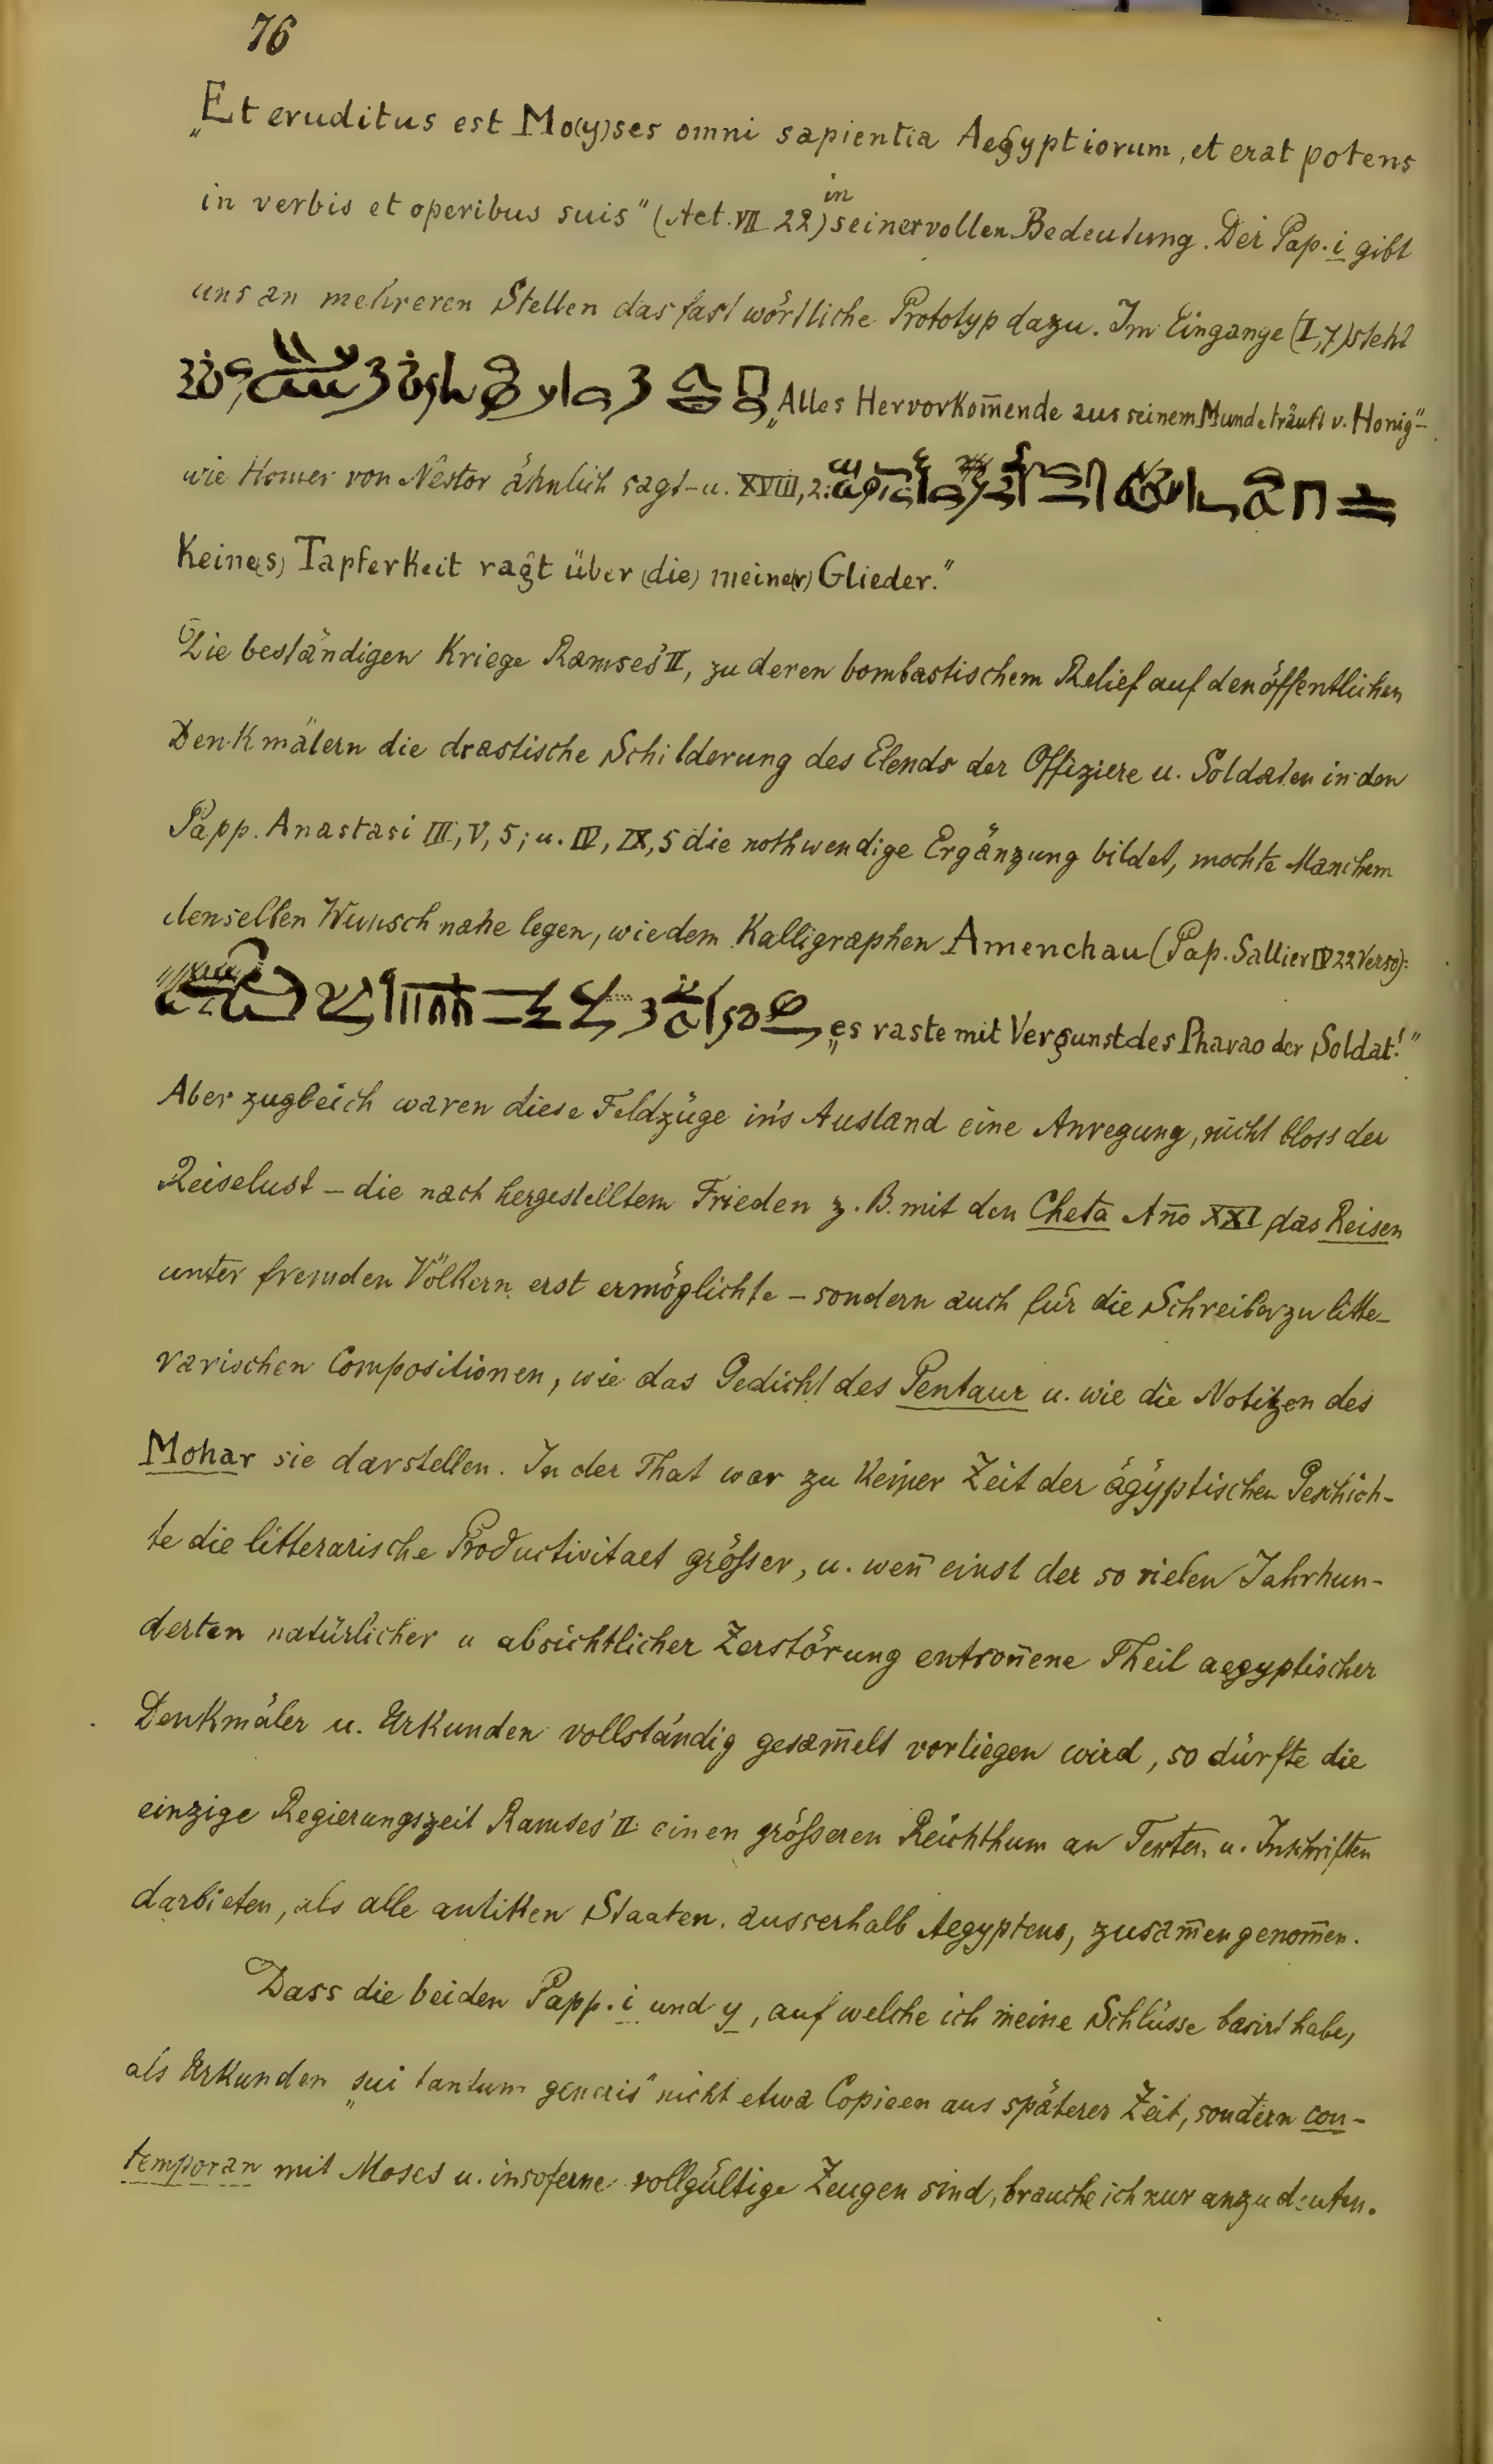 76
„Et eruditus est Mo(y)ses omni sapientia Aegyptiorum, et erat potens
in verbis et operibus suis" (Act. VII 22) in seiner vollen Bedeutung. Der Pap. i gibt
uns an mehreren Stellen das fast wörtliche Prototyp dazu. Im Eingange (I,7) steht
„Alles Hervorkom̅ende aus seinem Munde träuft v. Honig"-
wie Homer von Nestor ähnlich sagt - u. XVIII, 2:
Keine(s) Tapferkeit ragt über (die) meine(r) Glieder."
Die beständigen Kriege Ramses' II, zu deren bombastischem Relief auf den öffentlichen
Denkmälern die drastische Schilderung des Elends der Offiziere u. Soldaten in den
Papp. Anastasi III, V, 5; u. IV, IX, 5 die nothwendige Ergänzung bildet, mochte Manchem
denselben Wunsch nahe legen, wie dem Kalligraphen Amenchau (Pap. Sallier IV 22 Verso):
„es raste mit Vergunst des Pharao der Soldat!"
Aber zugleich waren diese Feldzüge in's Ausland eine Anregung, nicht bloss der
Reiselust – die nach hergestelltem Frieden z. B. mit den Cheta An̅o XXI das Reisen
unter fremden Völkern erst ermöglichte – sondern auch für die Schreiber zu litte-
rarischen Compositionen, wie das Gedicht des Pentaur u. wie die Notitzen des
Mohar sie darstellen. In der That war zu keiner Zeit der ägyptischen Geschich-
te die litterarische Productivitaet größer, u. wen̅ einst der so vielen Jahrhun-
derten natürlicher u absichtlicher Zerstörung entron̅ene Theil aegyptischer
Denkmäler u. Urkunden vollständig gesam̅elt vorliegen wird, so dürfte die
einzige Regierungszeit Ramses' II einen größeren Reichthum an Texten u. Inschriften
darbieten, als alle antiken Staaten ausserhalb Aegyptens, zusam̅engenom̅en.
Dass die beiden Papp. i und y, auf welche ich meine Schlüsse basirt habe,
als Urkunden „sui tantum generis" nicht etwa Copieen aus späterer Zeit, sondern con-
temporan mit Moses u. insoferne vollgültige Zeugen sind, brauche ich nur anzudeuten.